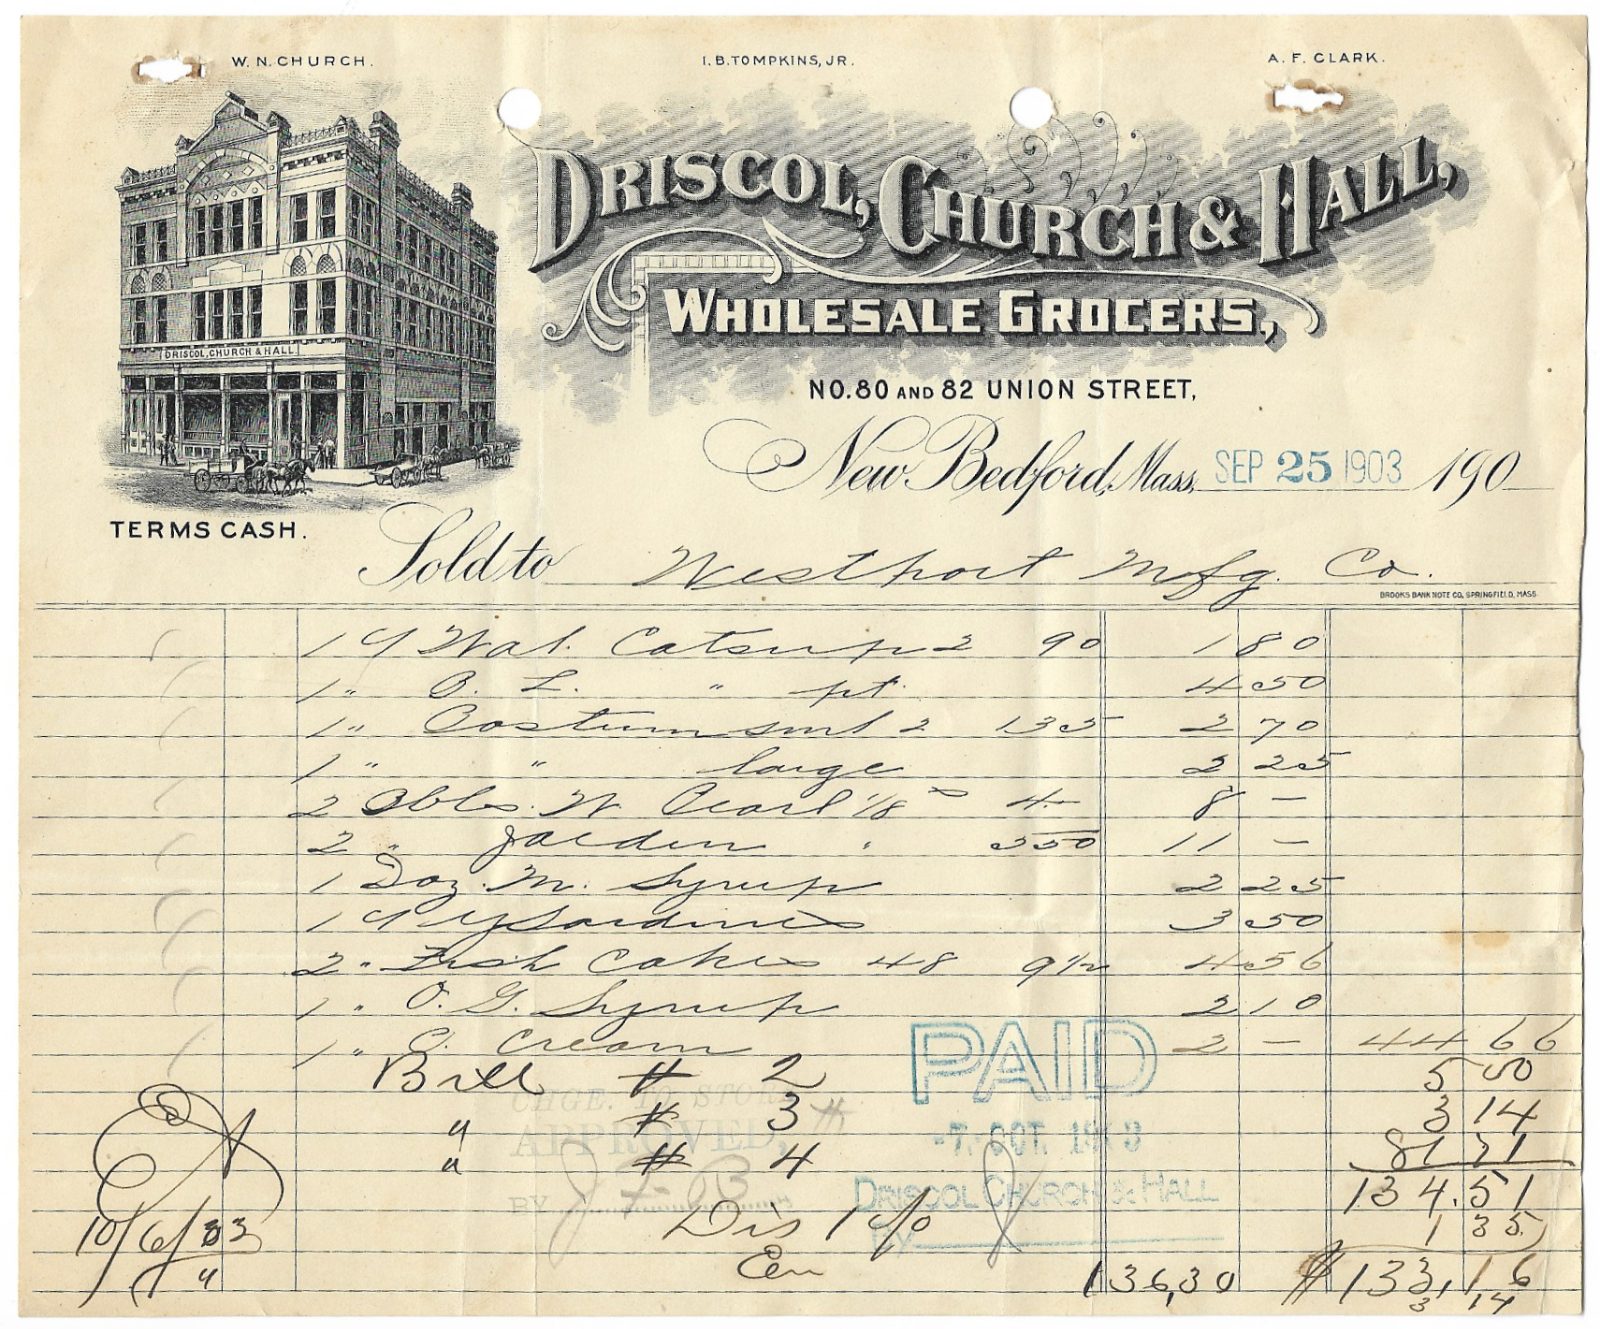 W. N. CHURCH.
I. B. TOMPKINS, JR.
A. F. CLARK.
DRISCOL, CHURCH & HALL,
WHOLESALE GROCERS,
DRISCOL, CHURCH & HALL
NO. 80 AND 82 UNION STREET,
New Bedford, Mass. SEP 25 1903 190
TERMS CASH.
Sold to Westport Mfg. Co.
BROOKS BANK NOTE CO, SPRINGFIELD, MASS.
1 Catsup 2 90 1 80
1 " B. L. " pt. 4 50
1 " Postum sml 2 135 2 70
1 " " large 2 25
2 Bbls. W. Pearl 1/8 4 - 8 -
2 " " 550 11 -
1 Doz. M. Syrup 2 25
1 Sardines 3 50
2 " Fish Cakes 48 9½ 4 56
1 " O. G. Syrup 2 10
1 " C. Cream 2 - 44 66
Bill # 2 5 50
" # 3 3 14
" # 4 81 21
134.51
CHGE. TO STORE
APPROVED,
BY J. F. B.
PAID
-7. OCT. 1903
DRISCOL CHURCH & HALL
BY
10/6/03
Dis 1 % 1 35
136,30 $133,16
3 14